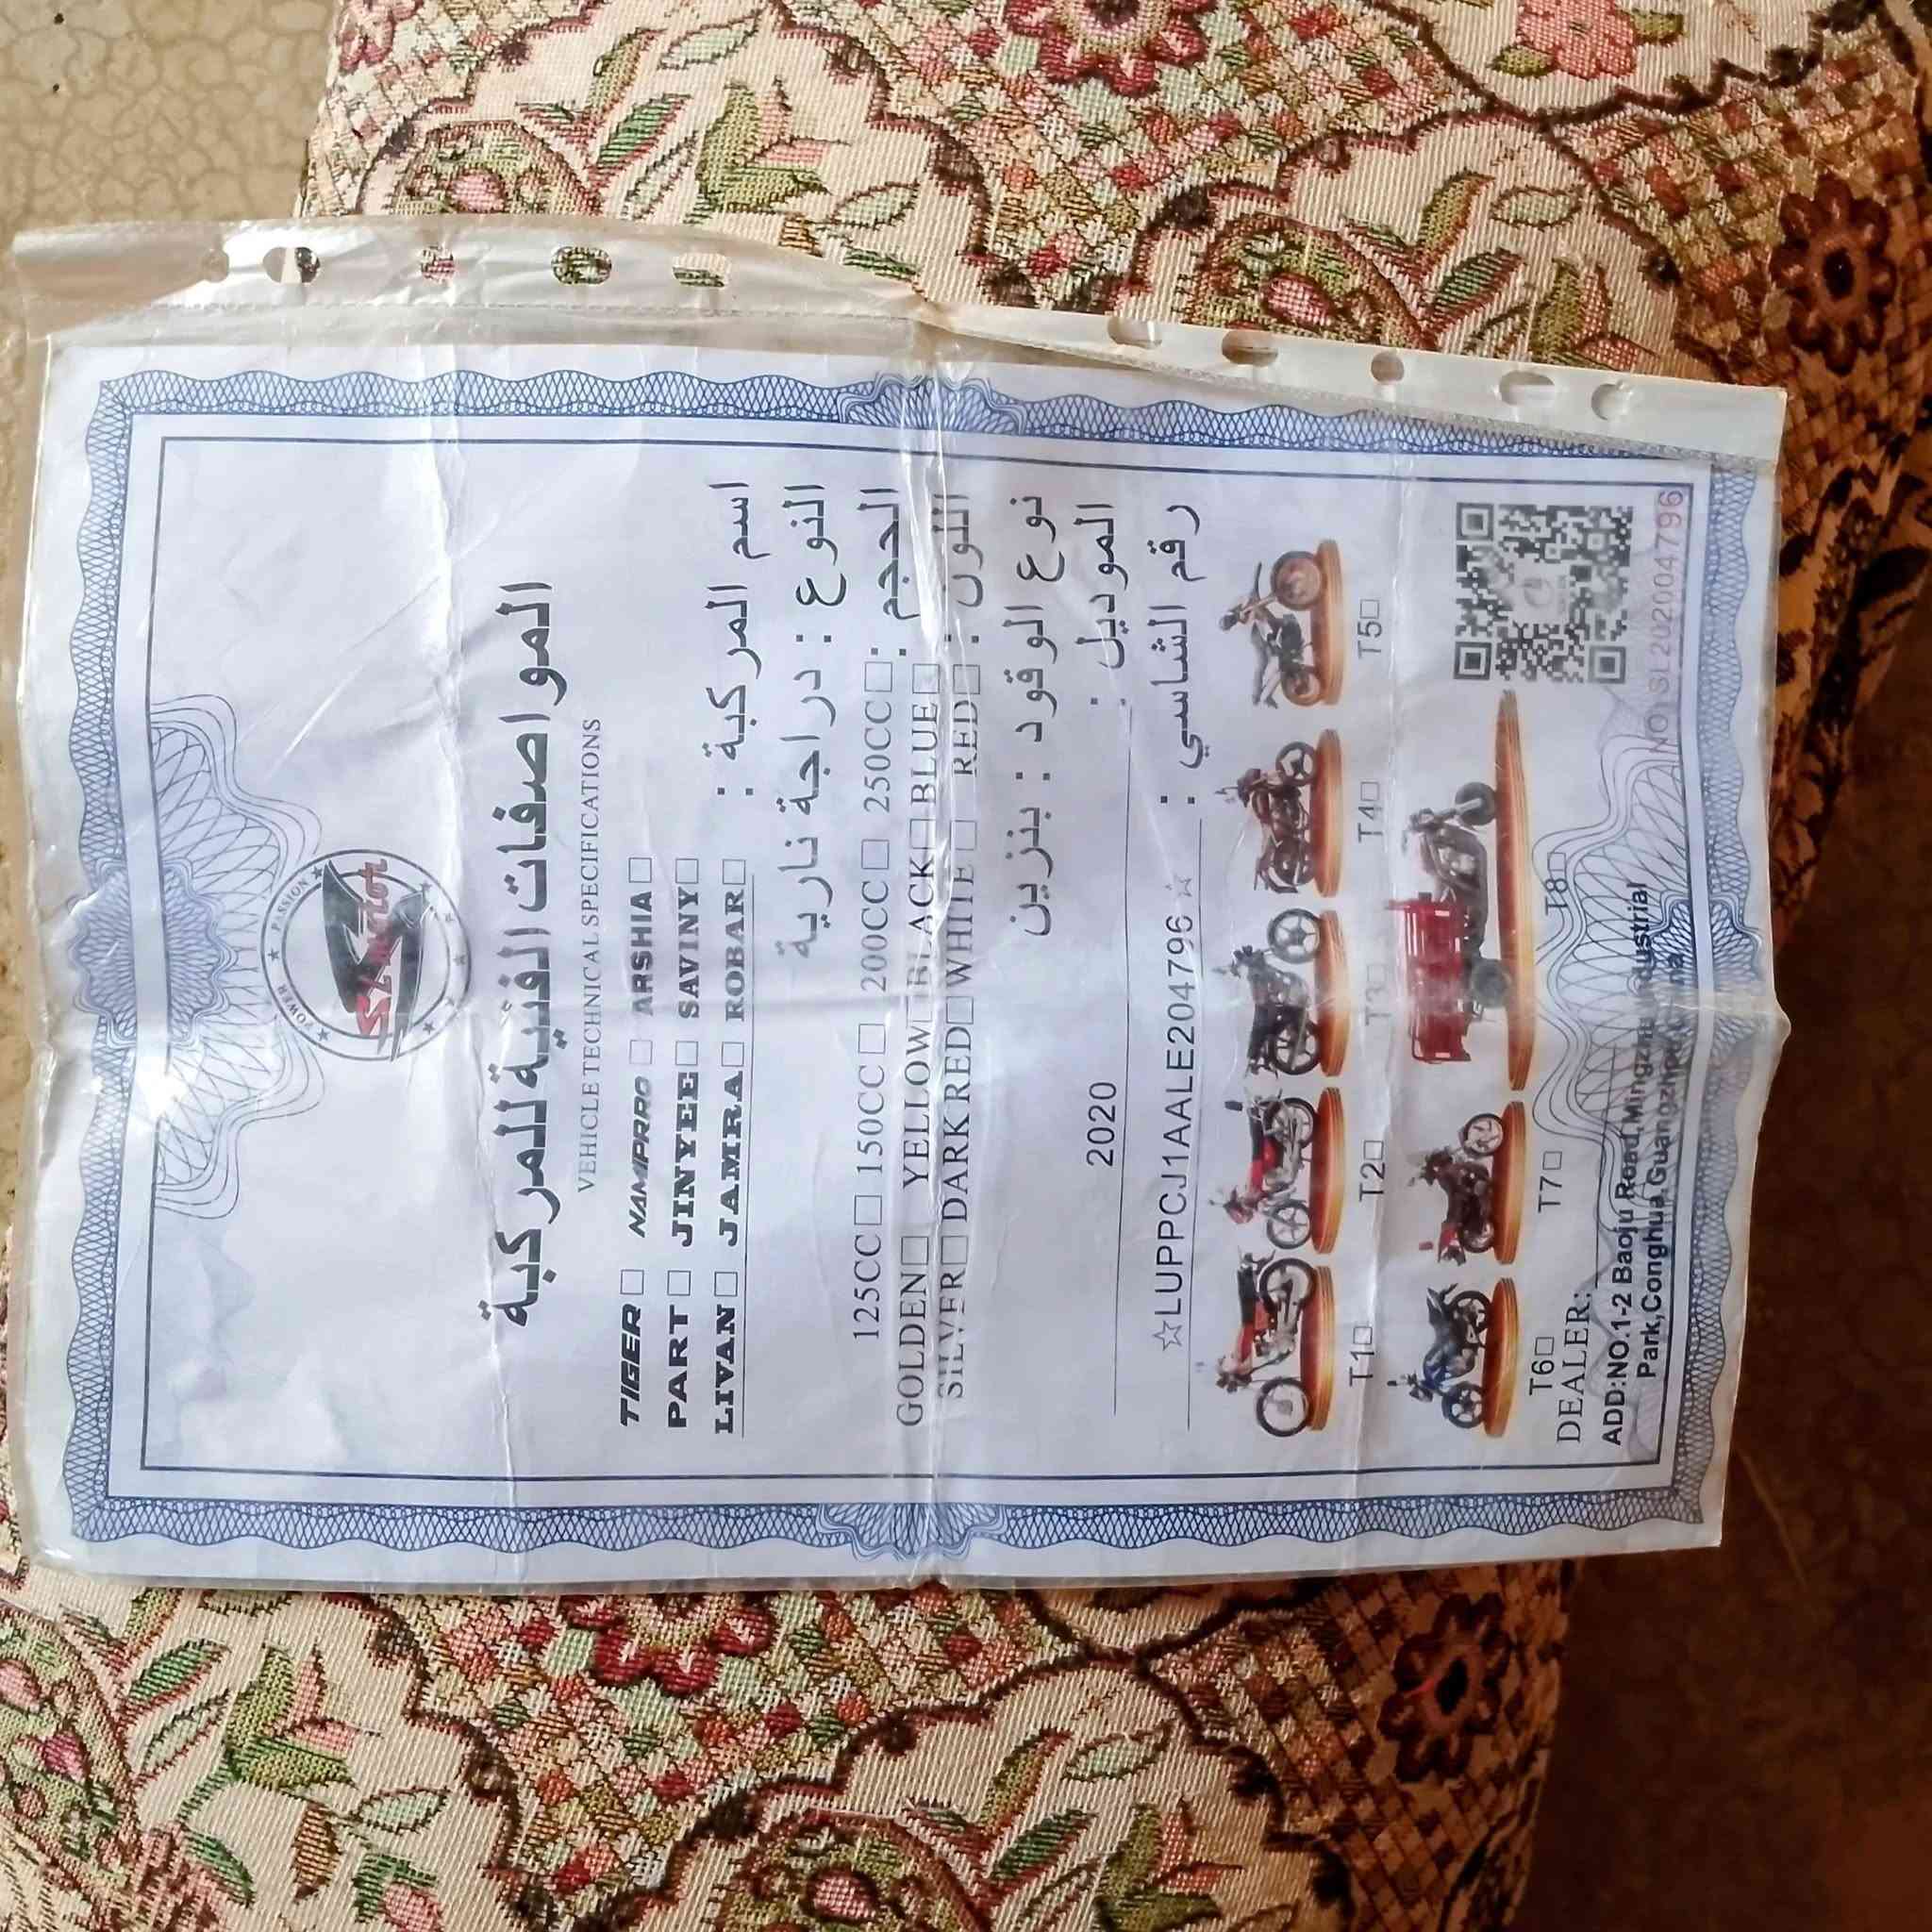 POWER ★ PASSION
SL motor
المواصفات الفنية للمركبة
VEHICLE TECHNICAL SPECIFICATIONS
TIGER □ NAMIPRRO □ ARSHIA □
PART □ JINYEE □ SAVINY □
LIVAN □ JAMRA □ ROBAR □ اسم المركبة :
النوع : دراجة نارية
125CC □ 150CC □ 200CC □ 250CC □ الحجم :
GOLDEN □ YELLOW □ BLACK □ BLUE □
SILVER □ DARK RED □ WHITE □ RED □ اللون :
نوع الوقود : بنزين
2020 الموديل :
☆LUPPCJ1AALE204796☆ رقم الشاسي :
T1□ T2□ T3□ T4□ T5□
T6□ T7□ T8□
DEALER:
ADD:NO.1-2 Baoju Road, Industrial
Park,Conghua Guangzhou
NO SL202004796